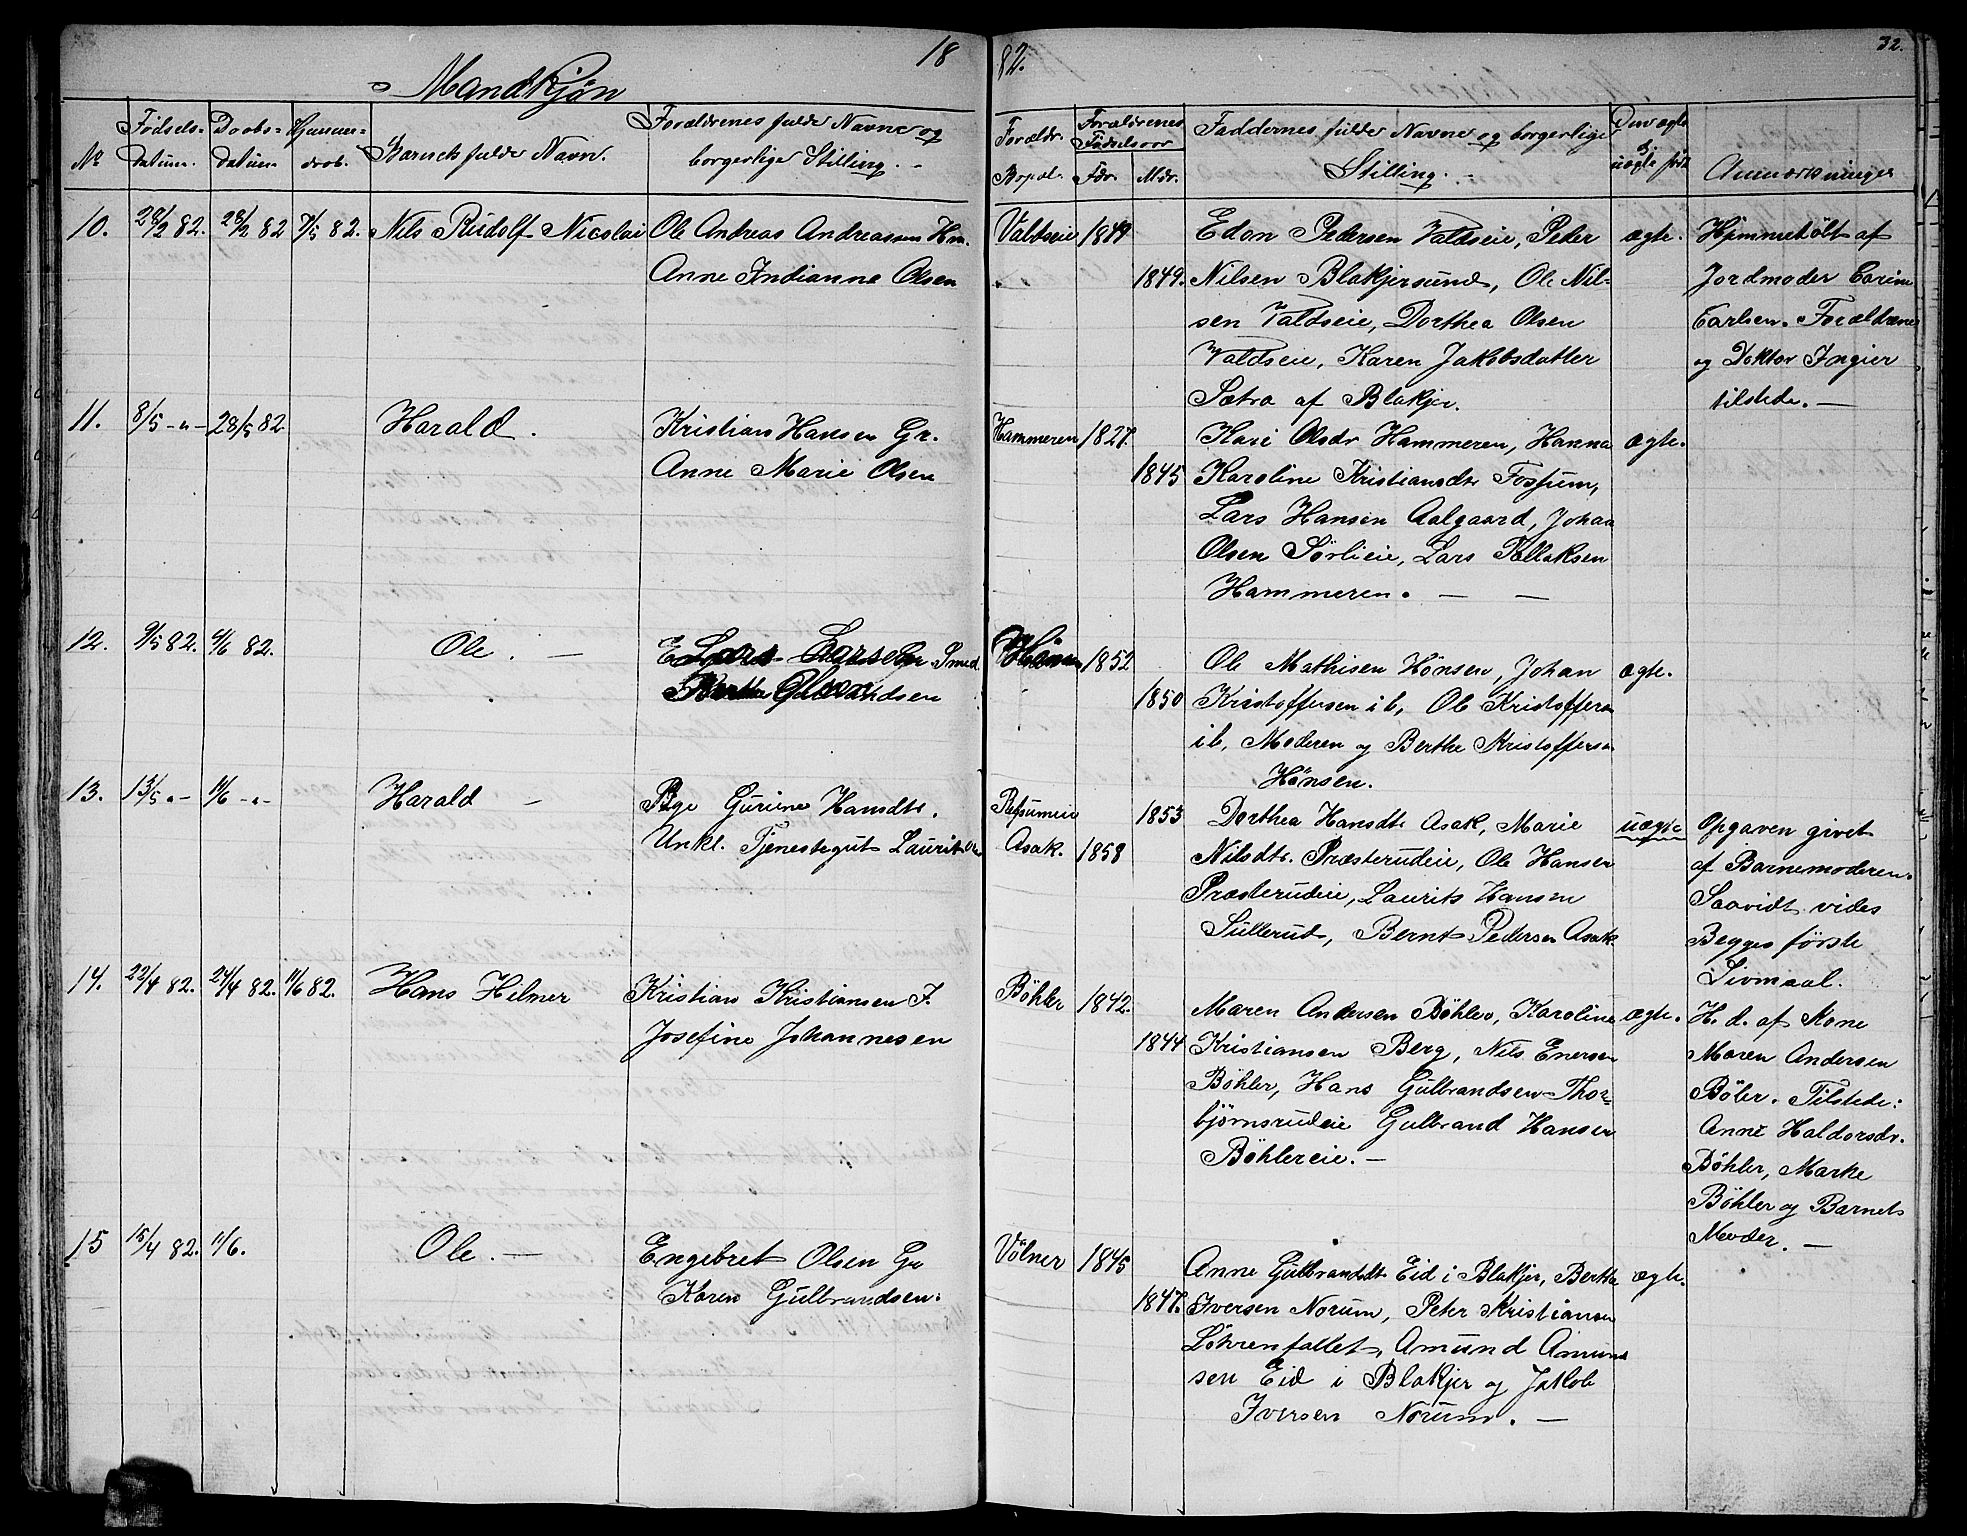 18 82. 32.
Mandkjøn
No Fødsels-datum. Daabs-datum Hjemmedaab. Barnets fulde Navn. Forældrenes fulde Navne og borgerlige Stilling. Forældr. Bopæl. Forældrenes Fødselsaar Fdr. Mdr. Faddernes fulde Navne og borgerlige Stilling. Om ægte uægte født Anmærkninger
10. 28/2 82. 28/2 82 7/5 82. Nils Rudolf Nicolai Ole Andreas Andreassen Hm. Valdseie 1849 Edon Pedersen Valdseie, Peter ægte. Hjemmedøbt af
Anne Indianne Olsen 1849. Nilsen Blakjersund, Ole Nil- Jordmoder Carine
sen Valdseie, Dorthea Olsen Carlsen. Forældrene
Valdseie, Karen Jakobsdatter og Doktor Ingier
Sætra af Blakjer. tilstede. —
11. 8/5 -"- 28/5 82 Harald. Kristian Hansen Gr. Hammeren 1827. Kari Olsdr Hammeren, Hanna ægte.
Anne Marie Olsen 1845 Karoline Kristiansdtr Fossum,
Lars Hansen Aalgaard, Johan
Olsen Sørlieie, Lars Tollaksen
Hammeren. — —
12. 9/5 82. 4/6 82. Ole. — Smed Hønsen 1852 Ole Mathisen Hønsen, Johan ægte.
1850 Kristoffersen ib, Ole Kristoffersen
ib, Moderen og Berthe Kristoffersen
Hønsen.
13. 13/5 -"- 11/6 -"- Harald — Pge Gurine Hansdtr. 1853 Dorthea Hansdtr Asak, Marie uægte Opgaven givet
Unkl. Tjenestegut Laurits Asak. 1858 Nilsdtr. Præsterudeie, Ole Hansen af Barnemoderen.
Præsterudeie, Laurits Hansen Saavidt vides
Sullerud, Bernt Pedersen Asak Begges første
Leivmaal.
14. 22/4 82. 24/4 82. 11/6 82. Hans Hilmer Kristian Kristiansen I. Bøhler 1842. Maren Andersen Bøhler, Karoline ægte. H. d. af Kone
Josefine Johannesen 1844 Kristiansen Berg, Nils Enersen Maren Andersen
Bøhler, Hans Gulbrandsen Thor- Bøler. Tilstede:
bjørnsrudeie Gulbrand Hansen Anne Haldorsdr.
Bøhlereie. — Bøhler, Marke
Bøhler og Barnets
Moder. —
15 15/4 82. 11/6. Ole. — Engebret Olsen Gr Vølner 1845 Anne Gulbrandsdtr Eid i Blakjer, Bertha ægte.
Karen Gulbrandsen. 1847. Iversen Norum, Peter Kristiansen
Løkrenfallet, Amund Amund
sen Eid i Blakjer og Jakob
Iversen Norum. —